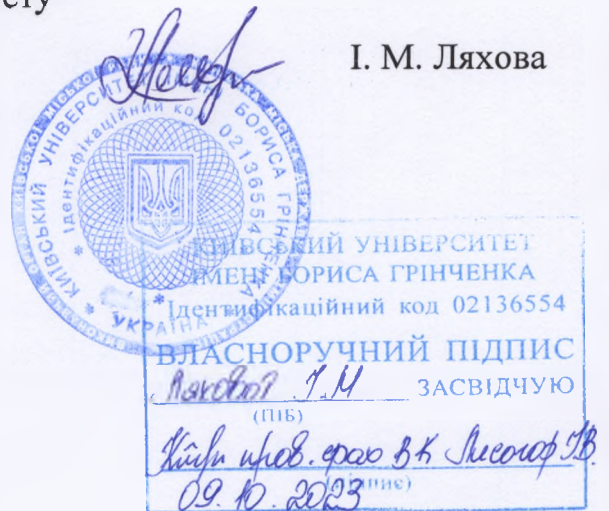 ету
І. М. Ляхова
КИЇВСЬКИЙ УНІВЕРСИТЕТ ІМЕНІ БОРИСА ГРІНЧЕНКА
Ідентифікаційний код 02136554
* УКРАЇНА *
КИЇВСЬКИЙ УНІВЕРСИТЕТ
ІМЕНІ БОРИСА ГРІНЧЕНКА
Ідентифікаційний код 02136554
ВЛАСНОРУЧНИЙ ПІДПИС
Ляхової І.М ЗАСВІДЧУЮ
(ПІБ)
пров. фах ВК
(підпис)
09.10.2023